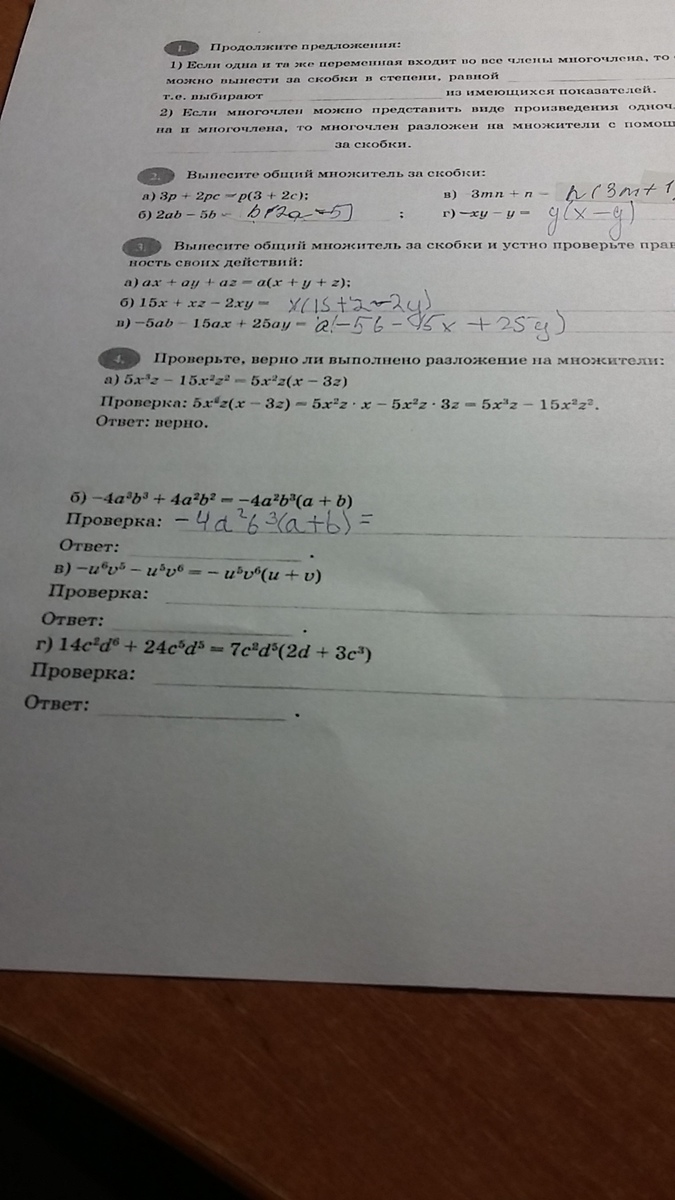 1. Продолжите предложения:
1) Если одна и та же переменная входит во все члены многочлена, то
можно вынести за скобки в степени, равной
т.е. выбирают из имеющихся показателей.
2) Если многочлен можно представить виде произведения одноч
на и многочлена, то многочлен разложен на множители с помощ
за скобки.
2. Вынесите общий множитель за скобки:
а) 3p + 2pc = p(3 + 2c); в) 3mn + n = n(3m+1)
б) 2ab – 5b = b(2a – 5) ; г) –xy – y = y(x – y)
3. Вынесите общий множитель за скобки и устно проверьте прав
ность своих действий:
а) ax + ay + az = a(x + y + z);
б) 15x + xz – 2xy = x(15+z–2y)
в) –5ab – 15ax + 25ay = a(–5b – 15x + 25y)
4. Проверьте, верно ли выполнено разложение на множители:
а) 5x³z – 15x²z² = 5x²z(x – 3z)
Проверка: 5x²z(x – 3z) = 5x²z · x – 5x²z · 3z = 5x³z – 15x²z².
Ответ: верно.
б) –4a³b³ + 4a²b² = –4a²b³(a + b)
Проверка: –4a²b³(a+b) =
Ответ: .
в) –u⁶v⁵ – u⁵v⁶ = – u⁵v⁶(u + v)
Проверка:
Ответ: .
г) 14c²d⁶ + 24c⁵d⁵ = 7c²d⁵(2d + 3c³)
Проверка:
Ответ: .